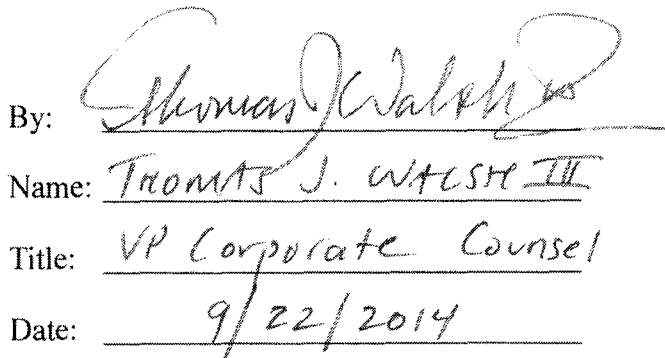 By: Thomas J Walsh III
Name: THOMAS J. WALSH III
Title: VP Corporate Counsel
Date: 9/22/2014